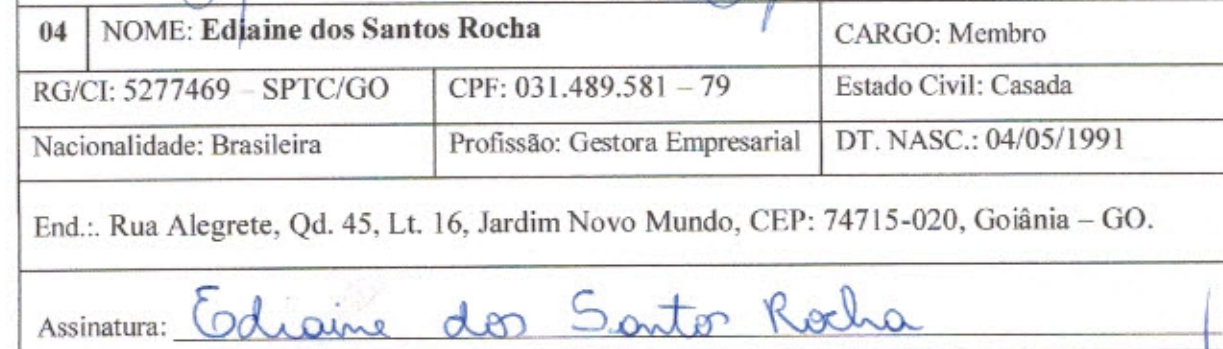 04 NOME: Ediaine dos Santos Rocha CARGO: Membro
RG/CI: 5277469 – SPTC/GO CPF: 031.489.581 – 79 Estado Civil: Casada
Nacionalidade: Brasileira Profissão: Gestora Empresarial DT. NASC.: 04/05/1991
End.:. Rua Alegrete, Qd. 45, Lt. 16, Jardim Novo Mundo, CEP: 74715-020, Goiânia – GO.
Assinatura: Ediaine dos Santos Rocha